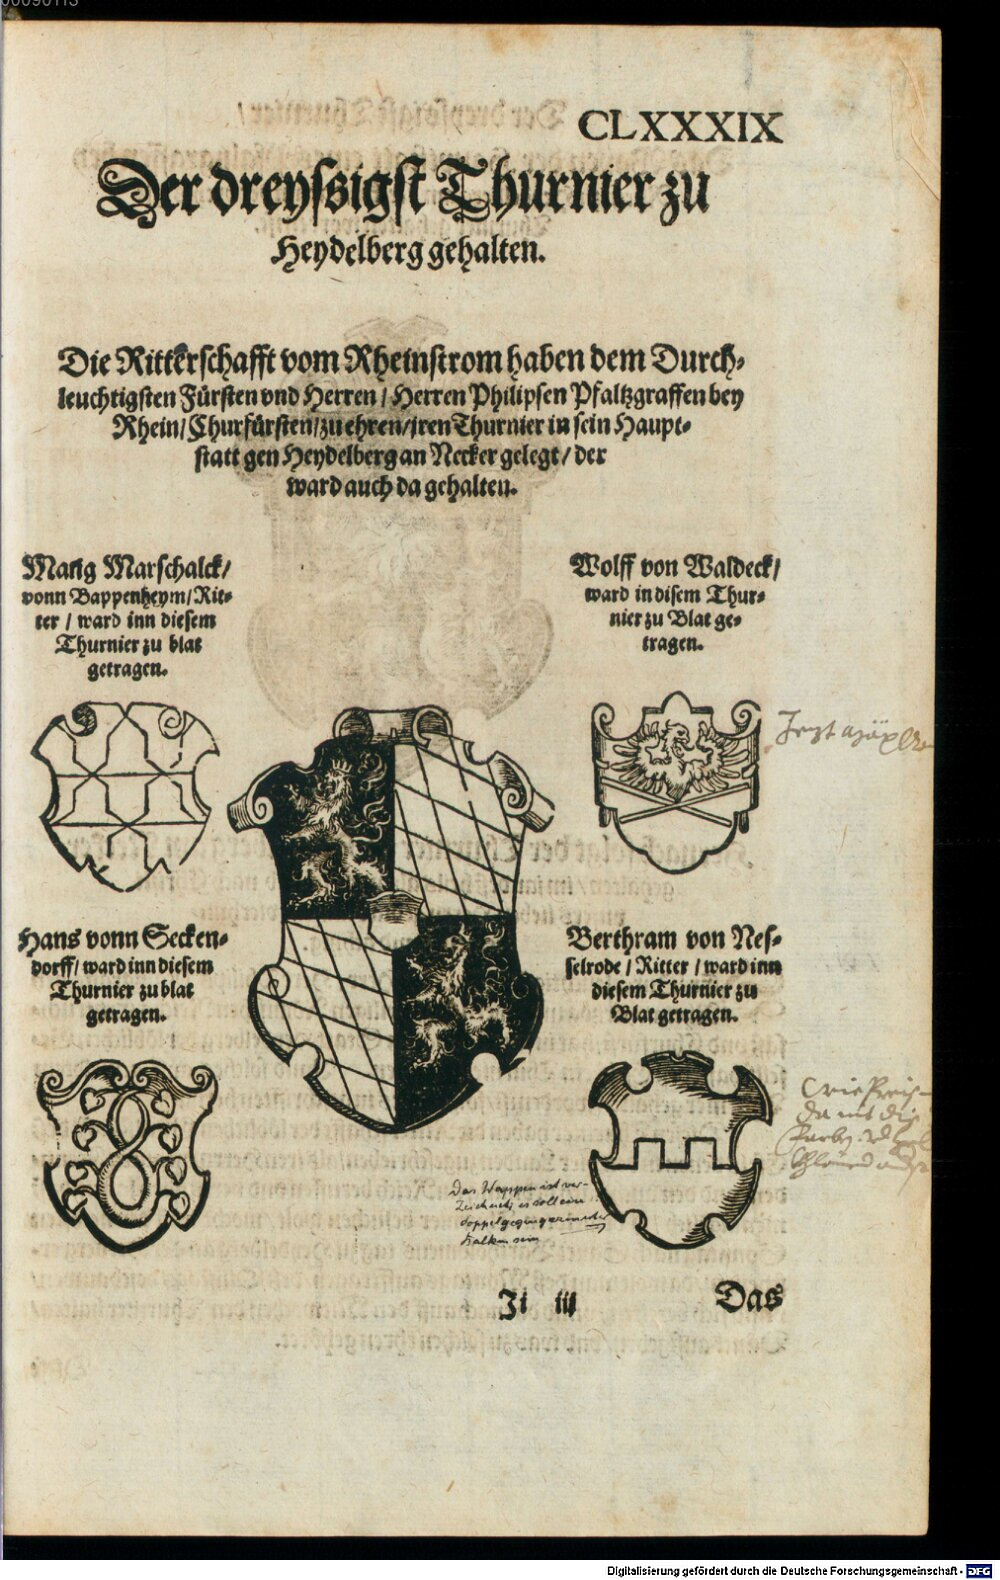 00090113
CLXXXIX
Der dreyssigst Thurnier zu
Heydelberg gehalten.
Die Ritterschafft vom Rheinstrom haben dem Durch-
leuchtigsten Fürsten vnd Herren / Herren Philipsen Pfaltzgraffen bey
Rhein / Churfürsten / zu ehren / jren Thurnier in sein Haupt-
statt gen Heydelberg an Necker gelegt / der
ward auch da gehalten.
Mang Marschalck /
vonn Bappenheym / Rit-
ter / ward inn diesem
Thurnier zu blat
getragen.
Wolff von Waldeck /
ward in disem Thur-
nier zu Blat ge-
tragen.
Jezt
Hans vonn Secken-
dorff / ward inn diesem
Thurnier zu blat
getragen.
Berthram von Nes-
selrode / Ritter / ward inn
diesem Thurnier zu
Blat getragen.
Das Wappen ist ver-
zeichnet, es soll ein
doppelgegengezinnter
Balken sein
Ji iiii
Das
Digitalisierung gefördert durch die Deutsche Forschungsgemeinschaft - DFG